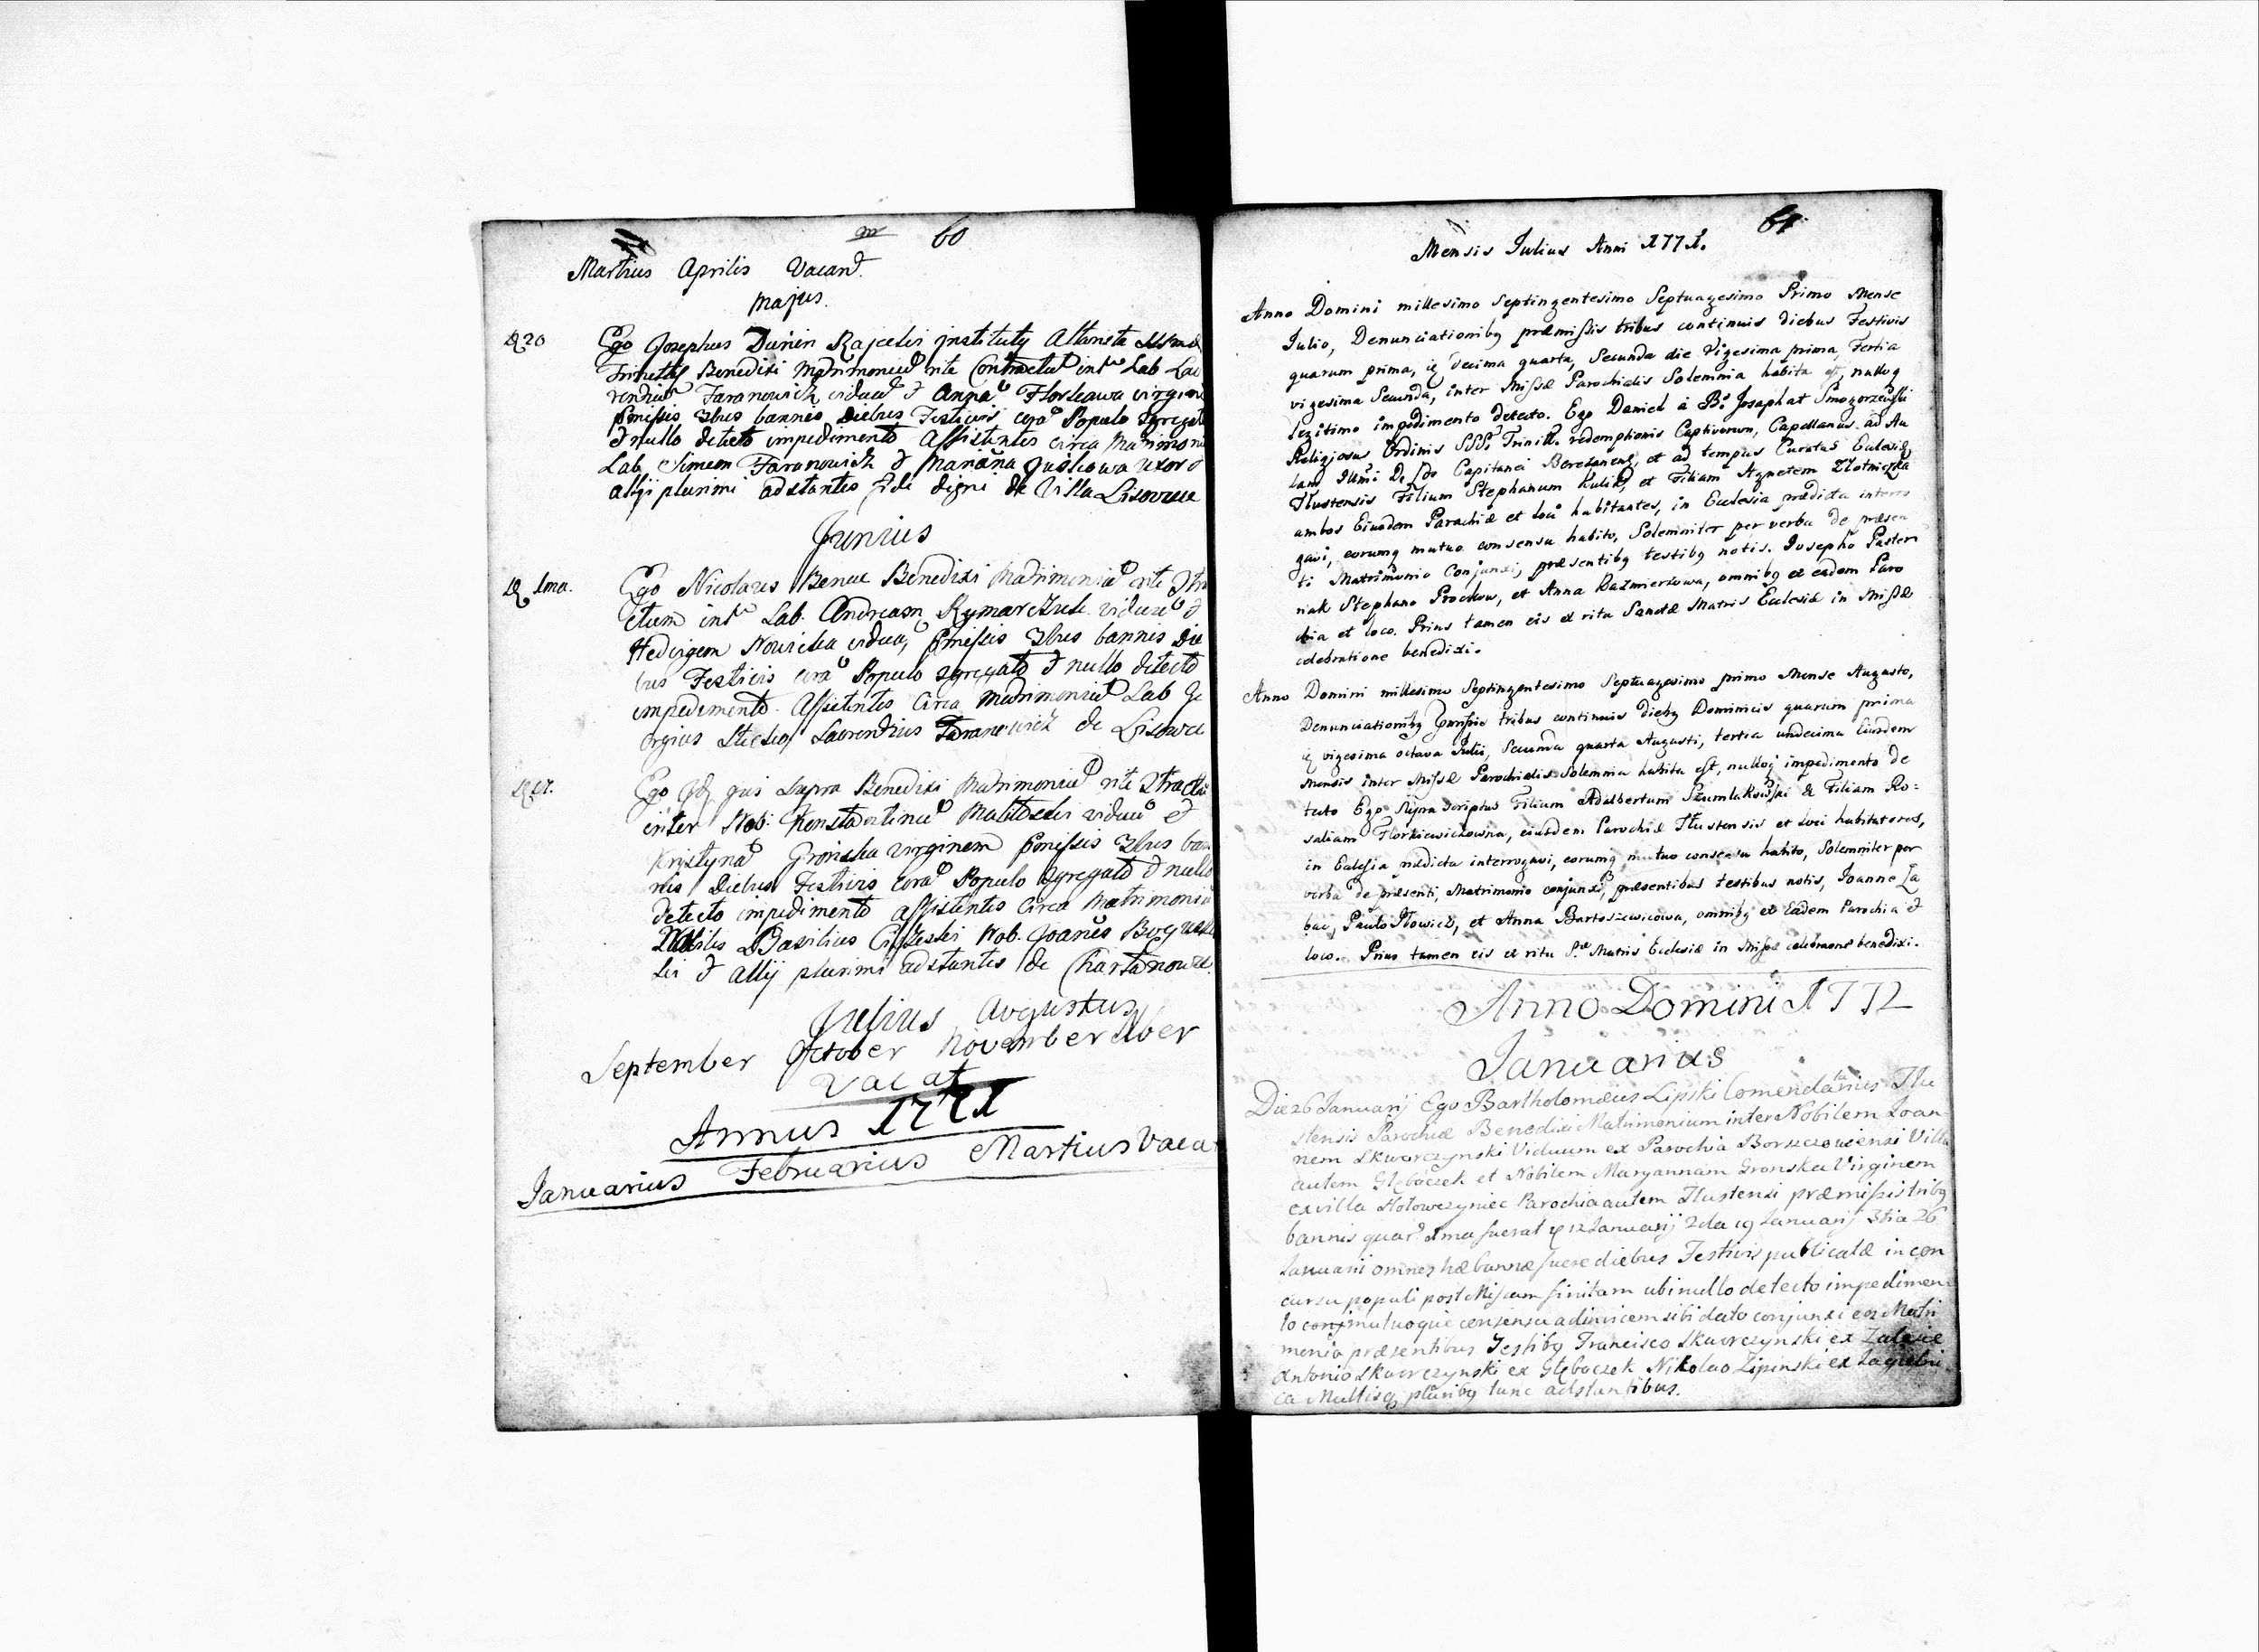 60
Martius Aprilis Vacant.
Majus.
D 20 Ego Josephus Dunin Rajecki
Benedixi Matrimoniū rite Contractū intr Lab Lau
rentiū Taranowicz viduū & Annā Florkowa virginē
pmissis 3bus bannis Diebus Festivis corā Populo
& nullo detecto impedimento Assistentes circa Matrimoni
Lab Simeon Taranowicz & Mariāna uxor
alÿ plurimi adstantes fide digni de Villa Lisowce
Junius
D 1ma. Ego Nicolaus Benedixi Matrimoniū rite
ctum intr Lab. Andream Rymarczuk viduū &
Hedvigem Nowicka viduā, pmissis 3bus bannis Die
bus Festivis corā Populo gregato & nullo detecto
impedimento. Assistentes Circa Matrimoniū Lab Ge
orgius Laurentius Taranowicz de Lisowce
Ego qui supra Benedixi Matrimoniū rite
inter Nob: Konstantinū viduū &
Kristynā Gronska virginem pmissis 3bus ban
nis Diebus Festivis corā Populo gregato & nullo
detecto impedimento assistentes Circa Matrimoniū
Nobilis Basilius Nob. Joanes
ski & Allij plurimi adstantes de Chartanowce.
Julius Augustus
September October November Xber
Vacat
Annus 1771
Januarius Februarius Martius Vaca
61
Mensis Julius Anni 1771.
Anno Domini millesimo Septingentesimo Septuagesimo Primo Mense
Julio, Denunciationibq præmissis tribus continuis diebus Festivis
quarum prima, decima quarta, Secunda die Vigesima prima, Tertia
vigesima Secunda, inter Missæ Parochialis Solemnia habita est, nulloq
legitimo impedimento detecto. Ego Daniel à B. Josaphat Smogorzewski
Religiosus Ordinis SSS. Trinitt. redemptionis Captivorum, Capellanus ad Au
lam Illmi D. Capitanei Berezanens, et ad tempus Curatus Ecclesiæ
Tlustensis Filium Stephanum Kulik, et Filiam Agnetem Zlotniczka
ambos Eiusdem Parochiæ et loci habitantes, in Ecclesia prædicta interro
gavi, eorumq mutuo consensu habito, Solemniter per verba de præsen
ti Matrimonio Conjunxi, præsentibq testibq notis. Josepho Paster
nak Stephano Prockow, et Anna Kazmierzowa, omnibq ex eadem Paro
chia et loco. Prius tamen eis ex ritu Sanctæ Matris Ecclesiæ in Missæ
celebratione benedixi.
Anno Domini millesimo Septingentesimo Septuagesimo primo Mense Augusto,
Denunciationibq pmissis tribus continuis diebq Dominicis quarum prima
vigesima octava Julii, Secunda quarta Augusti, tertia undecima Eiusdem
Mensis inter Missæ Parochialis Solemnia habita est, nulloq impedimento de
tecto Ego Supra scriptus Filium Adalbertum Szumlakowski & Filiam Ro=
saliam Florkiewiczowna, eiusdem Parochiæ Tlustensis et loci habitatores,
in Ecclesia prædicta interrogavi, eorumq mutuo consensu habito, Solemniter per
verba de præsenti, Matrimonio conjunxi, præsentibus testibus notis, Joanne La
bac, Paulo Ilowicz, et Anna Bartoszewicowa, omnibq ex Eadem Parochia &
loco. Prius tamen eis ex ritu S. Matris Ecclesiæ in Missæ celebratione benedixi.
Anno Domini 1772
Januarius
Die 26 Januarij Ego Bartholomæus Lipski Comendatarius Tlu
stensis Parochiæ Benedixi Matrimonium inter Nobilem Joan
nem Skwarczynski Viduum ex Parochia Borszczowiensi Villa
autem Głęboczek et Nobilem Maryannam Gronska Virginem
ex villa Hołowczyniec Parochia autem Tlustensi præmissis tribq
bannis quar 1ma fuerat 12 Januarij 2da 19 Januarij 3tia 26
Januarii omnes hæ bannæ fuere diebus Festivis publicatæ in con
cursu populi post Missam finitam ubi nullo detecto impedimen
to mutuoque consensu ad invicem sibi dato conjunxi eos Matri
monio præsentibus Testibq Francisco Skwrczynski ex Zalesie
Antonio Skwrczynski ex Głęboczek Nikolao Lipinski ex Jagielni
ca Multisq pluribq tunc adstantibus.